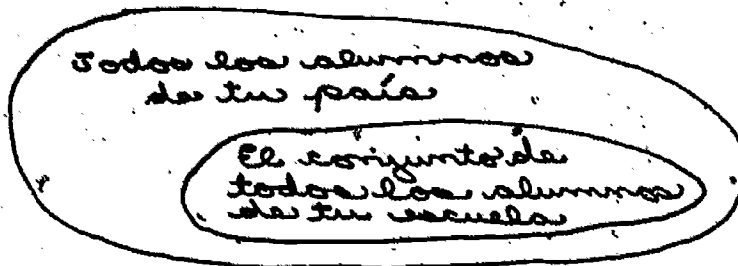 Todos los alumnos
de tu país
El conjunto de
todos los alumnos
de tu escuela